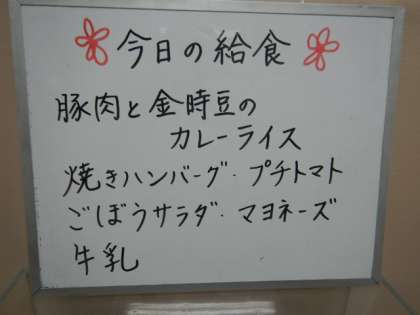 今日の給食
豚肉と金時豆の
カレーライス
焼きハンバーグ・プチトマト
ごぼうサラダ・マヨネーズ
牛乳